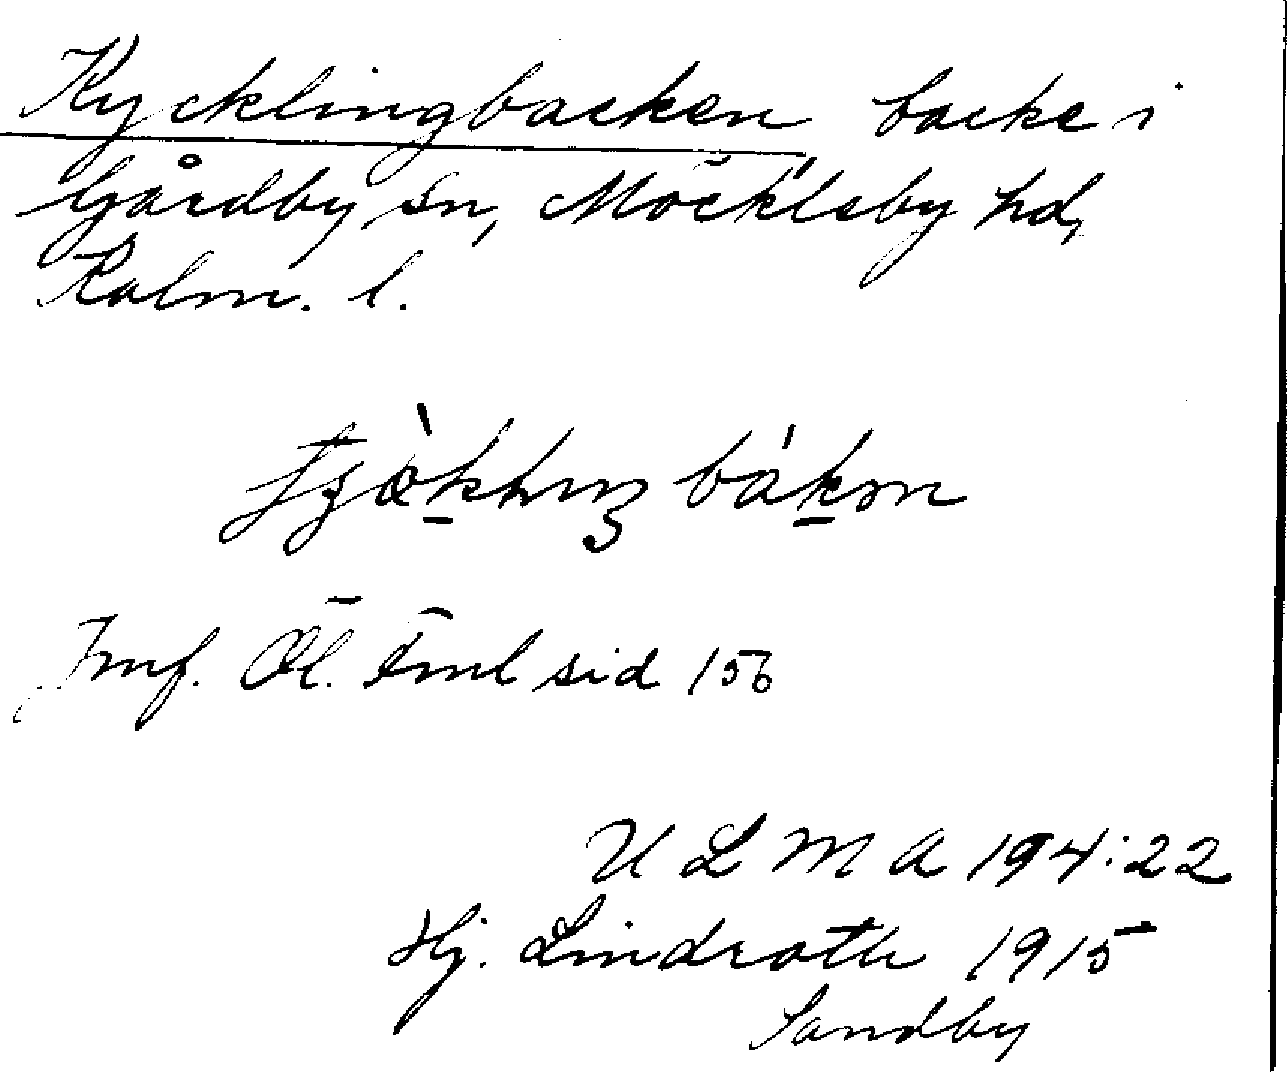 Kycklingbacken backe i
Gårdby sn, Möckleby hd,
Kalm. l.
Jmf. Öl. Fml sid 156
U L M A 194:22
Hj. Lindroth 1915
Sandby